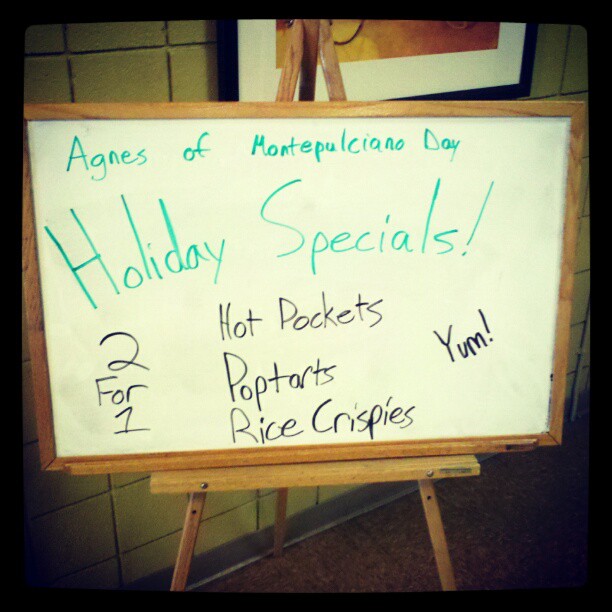 Agnes of Montepulciano Day
Holiday Specials!
2 For 1
Hot Pockets
Poptarts
Rice Crispies
Yum!